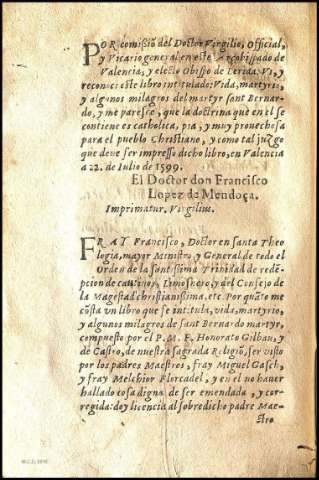 POR comissiõ del Doctor Virgilio, Official,
y Vicario general en este Arçobispado de
Valencia, y electo Obispo de Lerida. Vi, y
reconoci este libro intitulado: Vida, martyrio,
y algunos milagros del martyr sant Bernar-
do, y me paresce, que la doctrina que en el se
contiene es catholica, pia, y muy prouechosa
para el pueblo Christiano, y como tal juzgo
que deue ser impresso dicho libro, en Valencia
a 22. de Iulio de 1599.
El Doctor don Francisco
Lopez de Mendoça.
Imprimatur. Virgilius.
FRAY Francisco, Doctor en santa Theo
logia, mayor Ministro y General de todo el
Orden de la santissima Trinidad de redẽ-
pcion de cautiuos, Limosnero, y del Consejo de
la Magestad christianissima, etc. Por quãto me
cõsta vn libro que se intitula, vida, martyrio,
y algunos milagros de sant Bernardo martyr,
compuesto por el P. M. F. Honorato Gilbau, y
de Castro, de nuestra sagrada Religiõ, ser visto
por los padres Maestros, fray Miguel Gasch,
y fray Melchior Florcadel, y en el no hauer
hallado cosa digna de ser emendada, y cor-
regida: doy licencia al sobredicho padre Mae-
stro